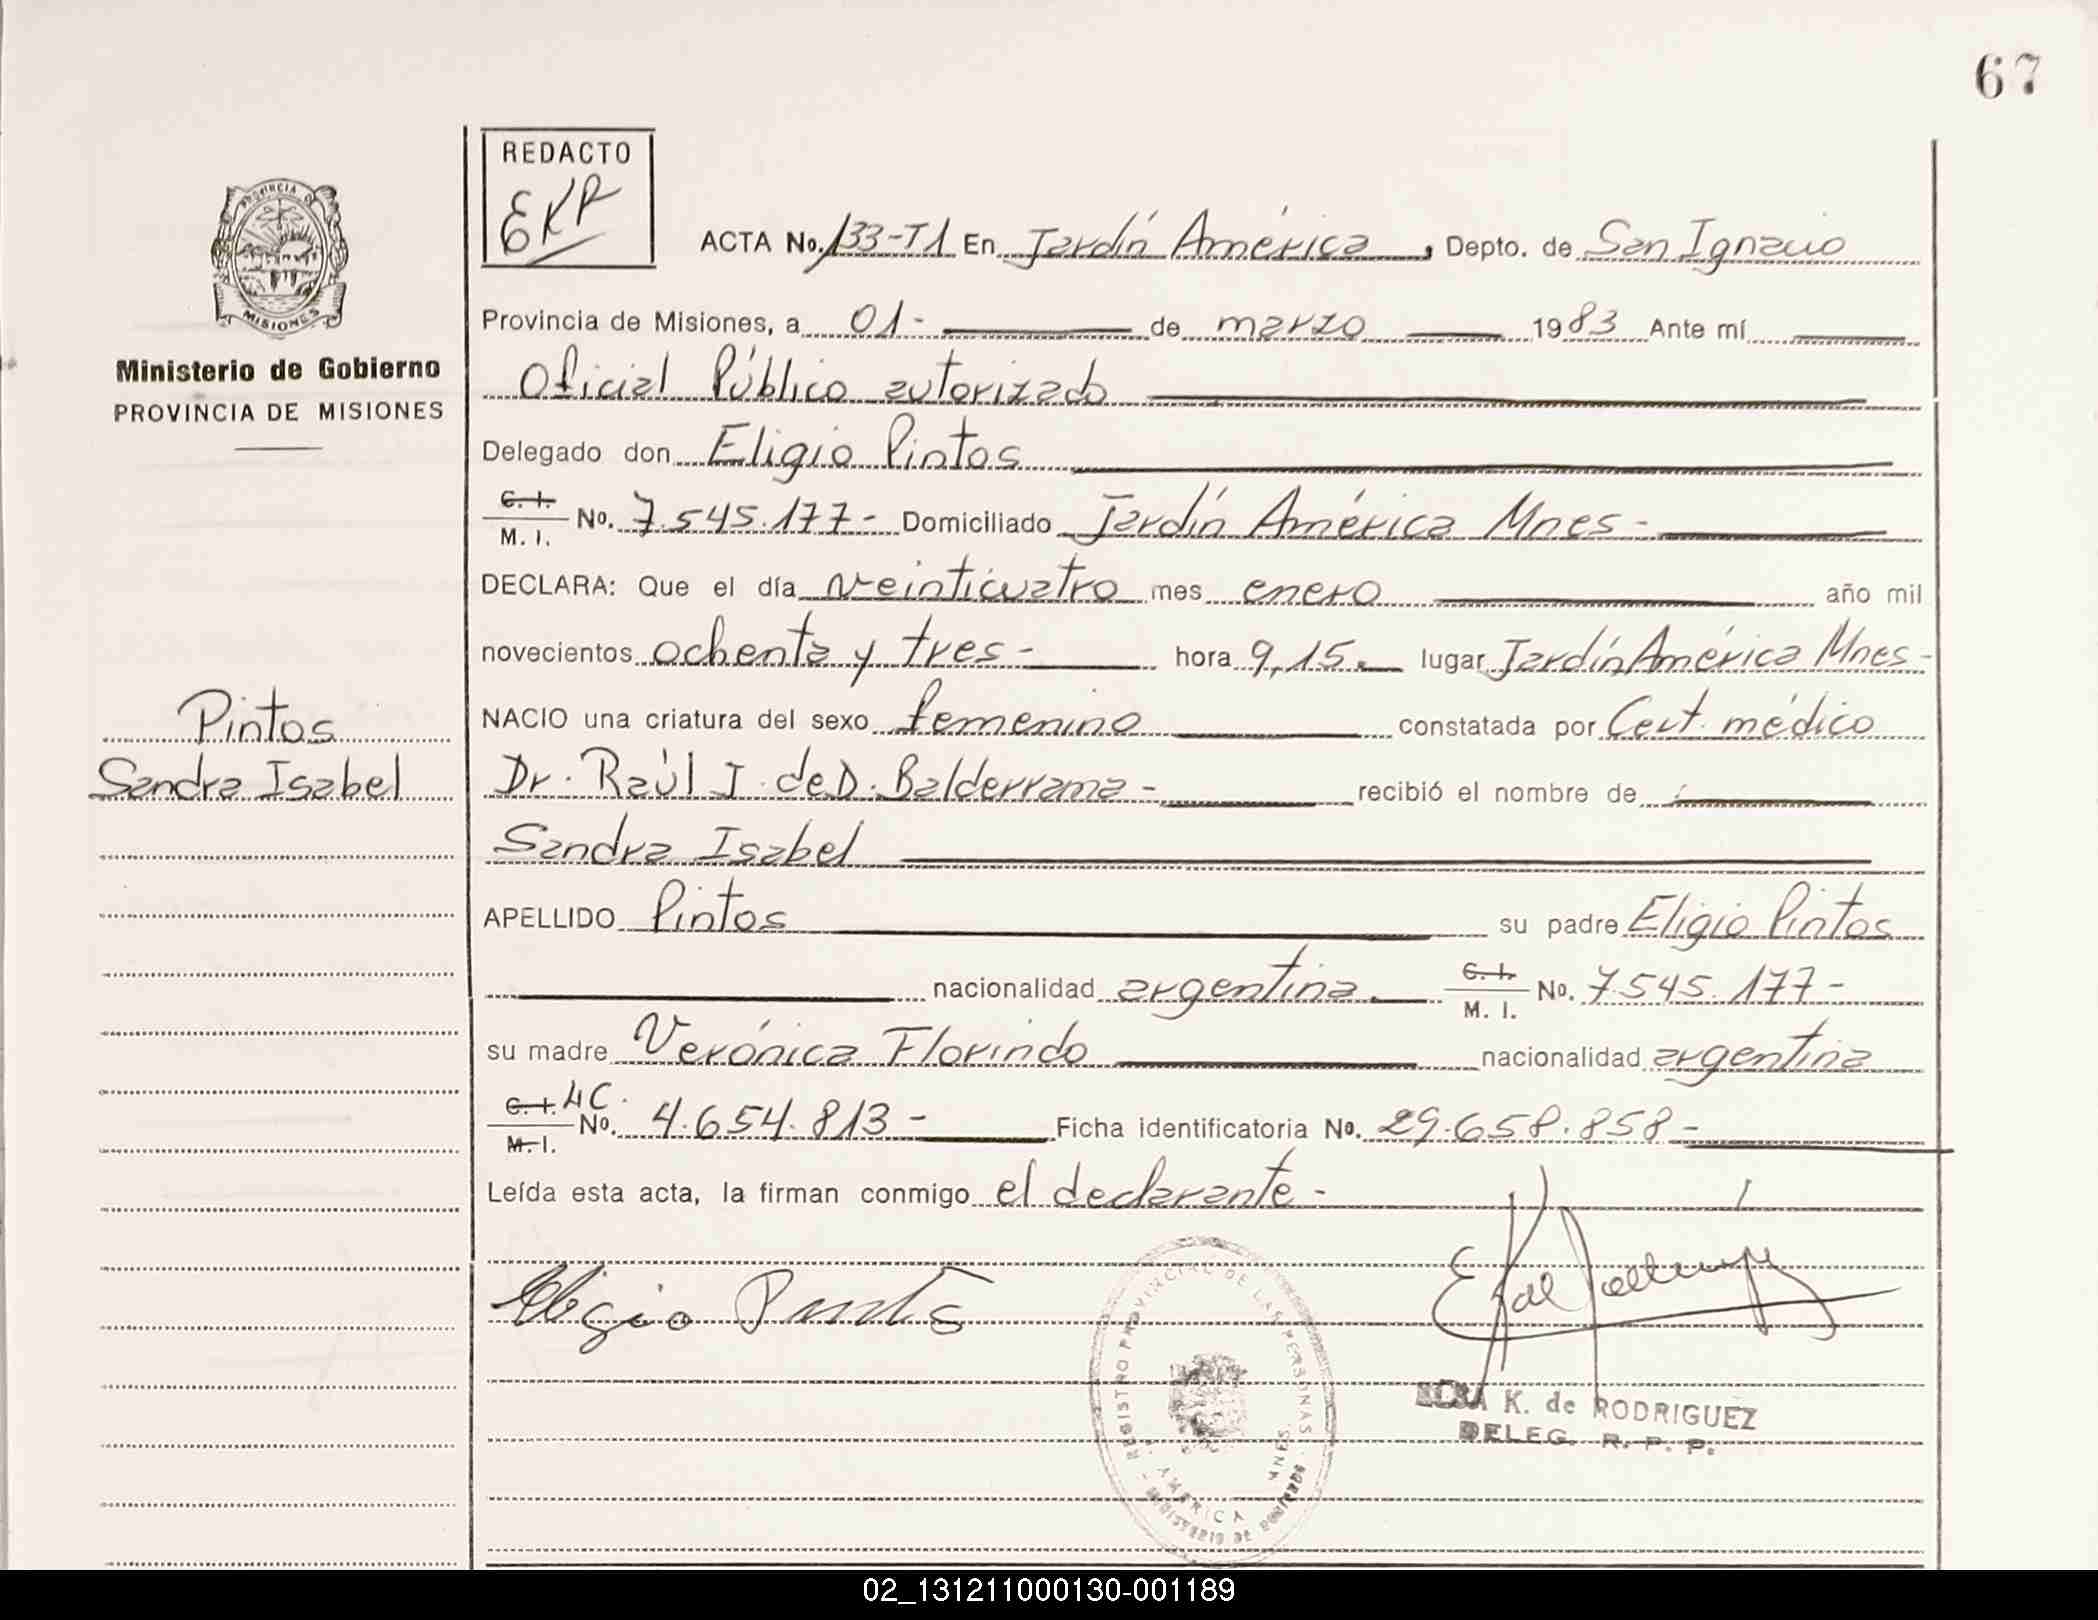 67
REDACTO
EKR
PROVINCIA DE
MISIONES
Ministerio de Gobierno
PROVINCIA DE MISIONES
ACTA No. 133-T1 En Jardín América, Depto. de San Ignacio
Provincia de Misiones, a 01- de marzo 1983 Ante mí
Oficial Público autorizado
Delegado don Eligio Pintos
C. I. / M. I. No. 7.545.177- Domiciliado Jardín América Mnes-
DECLARA: Que el día veinticuatro mes enero año mil
novecientos ochenta y tres- hora 9,15. lugar Jardín América Mnes-
Pintos
Sandra Isabel
NACIO una criatura del sexo femenino constatada por Cert. médico
Dr. Raúl J. de D. Balderrama- recibió el nombre de :
Sandra Isabel
APELLIDO Pintos su padre Eligio Pintos
nacionalidad argentina. C. I. / M. I. No. 7545.177-
su madre Verónica Florindo nacionalidad argentina
C. I. LC. / M. I. No. 4.654.813- Ficha identificatoria No. 29.658.858-
Leída esta acta, la firman conmigo el declarante-
Eligio Pintos
REGISTRO PROVINCIAL DE LAS PERSONAS
AMERICA MNES.
MINISTERIO DE GOBIERNO
K. de RODRIGUEZ
DELEG. R. P. P.
02_131211000130-001189